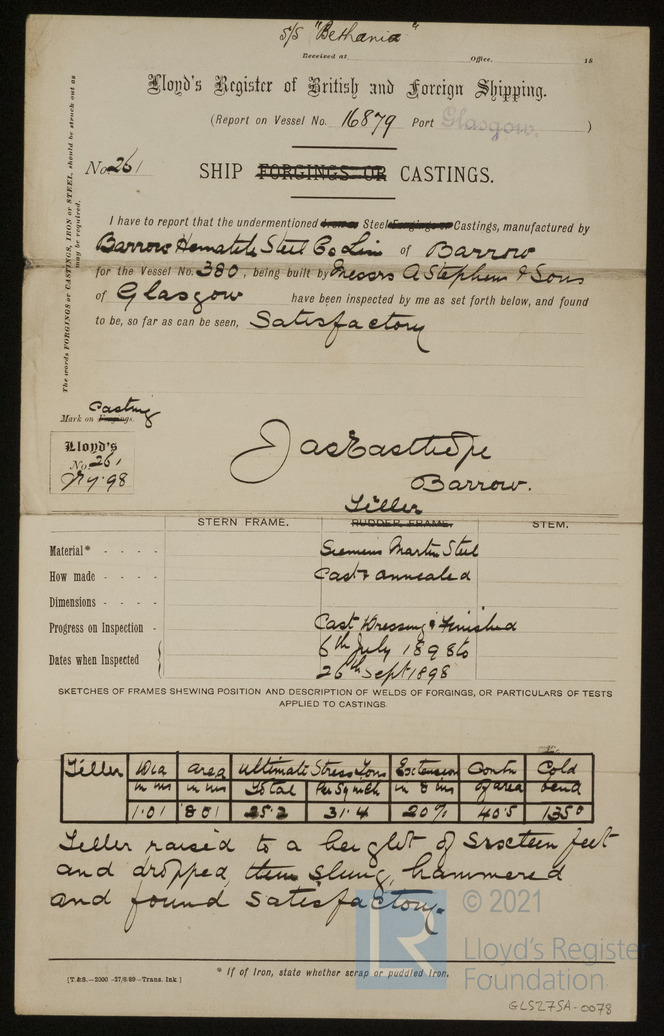 S/S "Bethania"
Received at Office, 18
Lloyd's Register of British and Foreign Shipping.
(Report on Vessel No. 16879 Port Glasgow. )
No. 261
SHIP FORGINGS OR CASTINGS.
The words FORGINGS or CASTINGS, IRON or STEEL, should be struck out as
may be required.
I have to report that the undermentioned Iron or Steel Forgings or Castings, manufactured by
Barrow Hematite Steel Co Lim of Barrow
for the Vessel No. 380, being built by Messrs A Stephen & Sons
of Glasgow have been inspected by me as set forth below, and found
to be, so far as can be seen, Satisfactory
Casting
Mark on Forgings.
Lloyd's
No. 261
98
Jas Easthope
Barrow.
Tiller
STERN FRAME. RUDDER FRAME. STEM.
Material* - - - - Siemens Martin Steel
How made - - - - Cast & annealed
Dimensions - - - -
Progress on Inspection - Cast Dressing & Finished
Dates when Inspected 6th July 1898 to
26th Sept 1898
SKETCHES OF FRAMES SHEWING POSITION AND DESCRIPTION OF WELDS OF FORGINGS, OR PARTICULARS OF TESTS
APPLIED TO CASTINGS.
Tiller Dia area Ultimate Stress Tons Extension Contn Cold
in ins in ins Total Per Sq inch in 8 ins of area bend
1.01 .801 25.2 31.4 20% 40.5 135°
Tiller raised to a height of Sixteen feet
and dropped, then slung, hammered
and found Satisfactory.
© 2021
Lloyd's Register
Foundation
* If of Iron, state whether scrap or puddled Iron.
[T.&S.—2000 -27/8/89—Trans. Ink]
GLS275A-0078